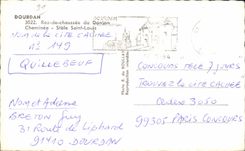 DOURDAN
3022. Rez-de-chaussée du Donjon
Cheminée - Stèle Saint-Louis
NOM DE LA CITE CACHEE
N° 149
QUILLEBEUF
Nom et Adresse
BRETON Guy
31 Route de Liphard
91410 DOURDAN
CONCOURS TELE 7 JOURS
TROUVEZ LA CITE CACHEE
CEDEX 3050
99305 PARIS CONCOURS